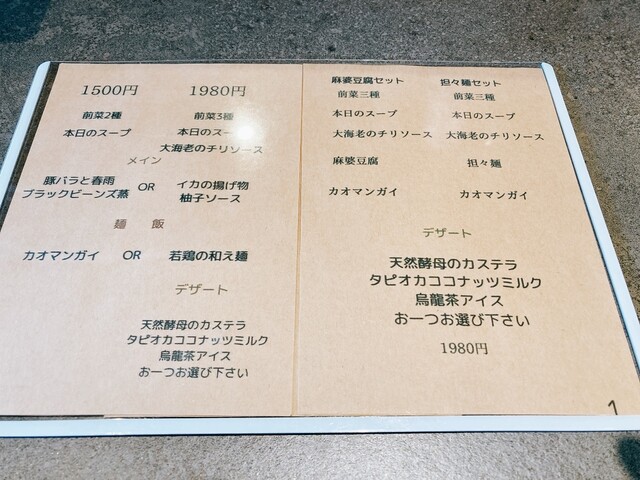 1500円 1980円
前菜2種 前菜3種
本日のスープ 本日のスー
大海老のチリソース
メイン
豚バラと春雨
ブラックビーンズ蒸 OR イカの揚げ物
柚子ソース
麺 飯
カオマンガイ OR 若鶏の和え麺
デザート
天然酵母のカステラ
タピオカココナッツミルク
烏龍茶アイス
お一つお選び下さい
麻婆豆腐セット 担々麺セット
前菜三種 前菜三種
本日のスープ 本日のスープ
大海老のチリソース 大海老のチリソース
麻婆豆腐 担々麺
カオマンガイ カオマンガイ
デザート
天然酵母のカステラ
タピオカココナッツミルク
烏龍茶アイス
お一つお選び下さい
1980円
1